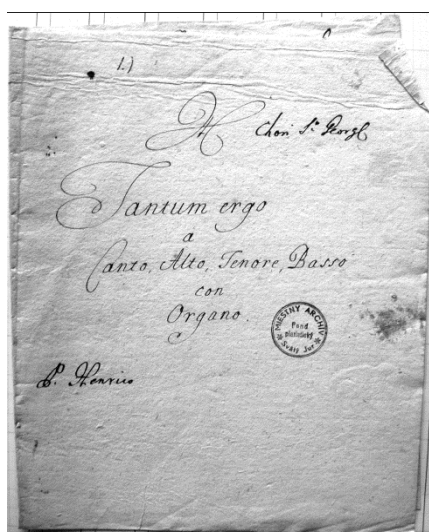 1.)
H Chori S: Georgl
Tantum ergo
a
Canto, Alto, Tenore, Basso
con
Organo.
MIESTNY ARCHIV
Fond
piaristický
Svätý Jur
P. Henrico